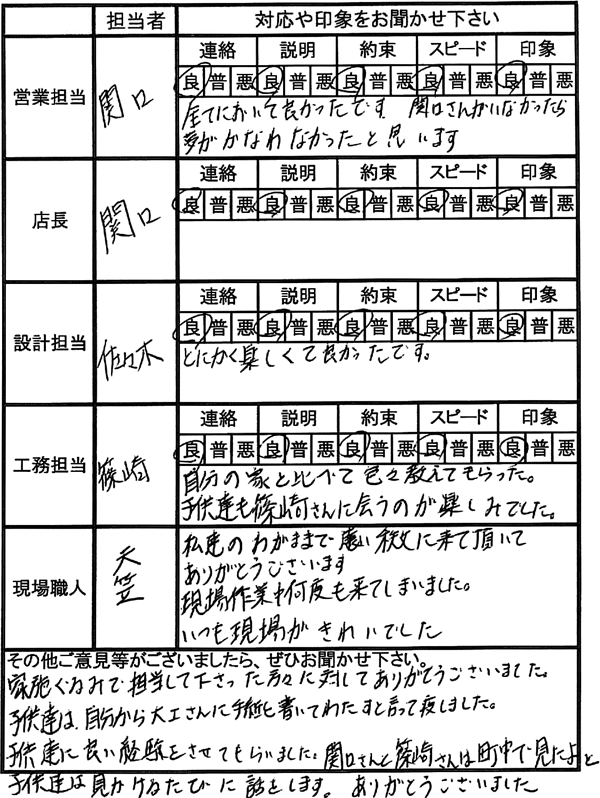 担当者 対応や印象をお聞かせ下さい
営業担当 関口
連絡 説明 約束 スピード 印象
良 普 悪 良 普 悪 良 普 悪 良 普 悪 良 普 悪
全てにおいて良かったです 関口さんがいなかったら
夢がかなわなかったと思います
店長 関口
連絡 説明 約束 スピード 印象
良 普 悪 良 普 悪 良 普 悪 良 普 悪 良 普 悪
設計担当 佐々木
連絡 説明 約束 スピード 印象
良 普 悪 良 普 悪 良 普 悪 良 普 悪 良 普 悪
とにかく楽しくて良かったです。
工務担当 篠崎
連絡 説明 約束 スピード 印象
良 普 悪 良 普 悪 良 普 悪 良 普 悪 良 普 悪
自分の家と比べて色々教えてもらった。
子供達も篠崎さんに会うのが楽しみでした。
現場職人 天笠
私達のわがままで遠い秩父に来て頂いて
ありがとうございます
現場作業中何度も来てしまいました。
いつも現場がきれいでした
その他ご意見等がございましたら、ぜひお聞かせ下さい。
家族ぐるみで担当して下さった方々に対してありがとうございました。
子供達は、自分から大工さんに手紙を書いてわたすと言って渡しました。
子供達に良い経験をさせてもらいました。関口さんと篠崎さんは町中で見たよと
子供達は見かけるたびに話をします。ありがとうございました